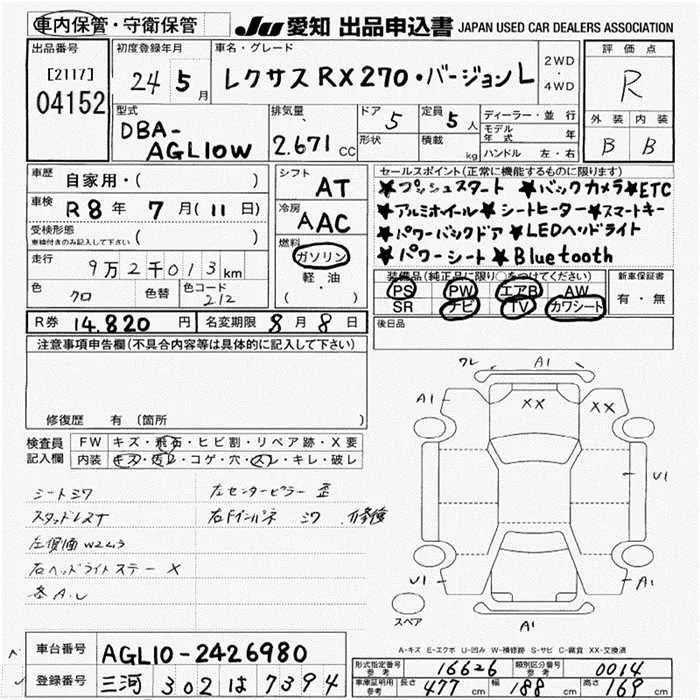 車内保管・守衛保管
JU 愛知 出品申込書 JAPAN USED CAR DEALERS ASSOCIATION
出品番号
[2117]
04152
初度登録年月
24 5月
車名・グレード
レクサスRX270・バージョンL
2WD
・
4WD
評価点
R
外装 内装
B B
型式
DBA-
AGL10W
排気量
2.671 CC
ドア 5
形状
定員 5人
積載 kg
ディーラー・並行
モデル年式 年
ハンドル 左・右
車歴 自家用・( )
車検 R8年 7月(11日)
受検形態
車検付きのみ記入して下さい ( )
走行 9万2千013km
色 クロ 色替 色コード 212
シフト AT
冷房 AAC
燃料
ガソリン
軽・油
( )
セールスポイント(正常に機能するものに限ります)
★プッシュスタート ★バックカメラ★ETC
★アルミホイール★シートヒーター★スマートキー
★パワーバックドア★LEDヘッドライト
★パワーシート★Bluetooth
装備品(純正品に限り○をつけてください)
PS PW エアB AW
SR ナビ TV カワシート
新車保証書
有・無
R券 14.820円 名変期限 8月8日
後日品
注意事項申告欄(不具合内容等は具体的に記入して下さい)
修復歴 有(箇所 )
検査員
記入欄
FW キズ・飛石・ヒビ割・リペア跡・X要
内装 キズ・汚レ・コゲ・穴・スレ・キレ・破レ
シートシワ
スタッドレスナ
右ヘッドライトステー X
各A.U
左センターピラー 歪
右Fインパネ シワ
ワレ A1
A1 XX XX
U1
U1 A1
A1
スペア
A-キズ E-エクボ U-凹み W-補修跡 S-サビ C-腐食 XX-交換済
車台番号 AGL10-2426980
登録番号 三河 302 は 7394
形式指定番号 参考 16626 類別区分番号 参考 0014
車庫証明用 参考 長さ 477cm 幅 188cm 高さ 169cm